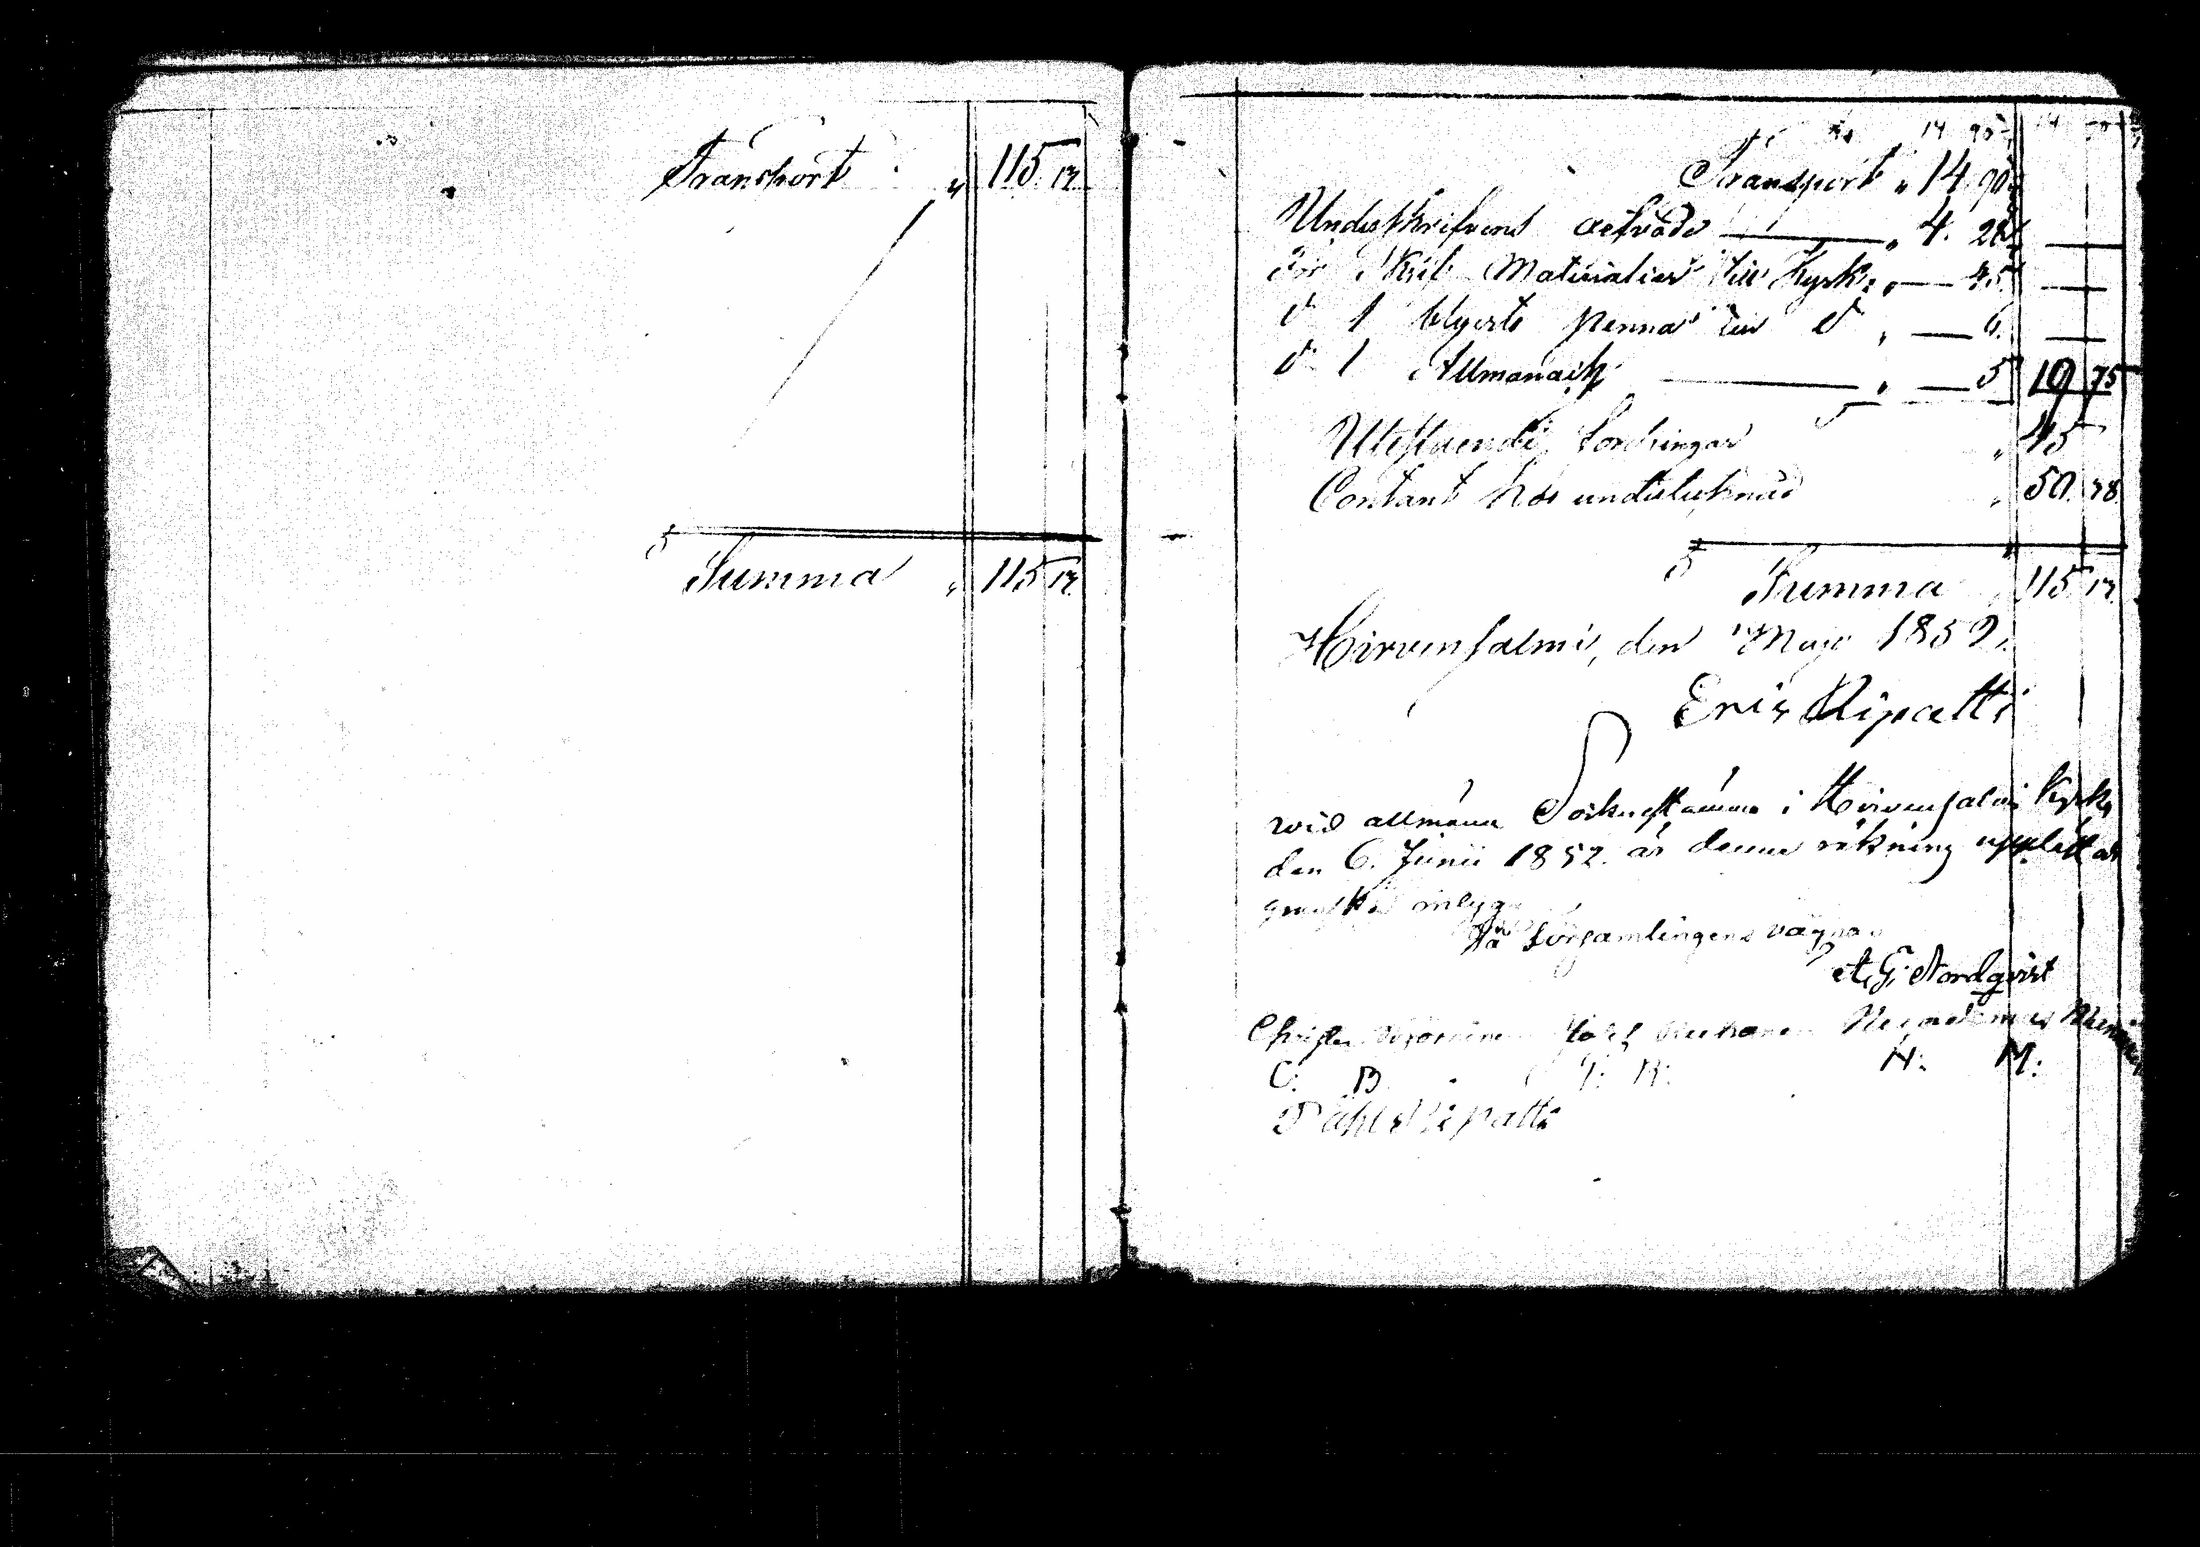 Transport " 115 17.
Summa " 115 17.
Transport " 14. 90
Underskrifvens arfvode " 4. 29
För Skrif Materialier till Kyrk: " — 45
d° 1 blyerts penna till d° " — 6.
d° 1 Allmanack " — 5 19 75
Utestaende fordringar " 45
Contant hos undertecknad " 50. 48
Summa " 115 17.
Hirvensalmi, den Maji 1852.
Eric Ripatti
wid allmänn Sockenstämma i Hirvensalmi Kyrka
den 6. Junii 1852. är denna räkning uppläst
På församlingens vägnar
A. G. Nordqvist
C: B. J: K: N: M:
Påhl Ripatti